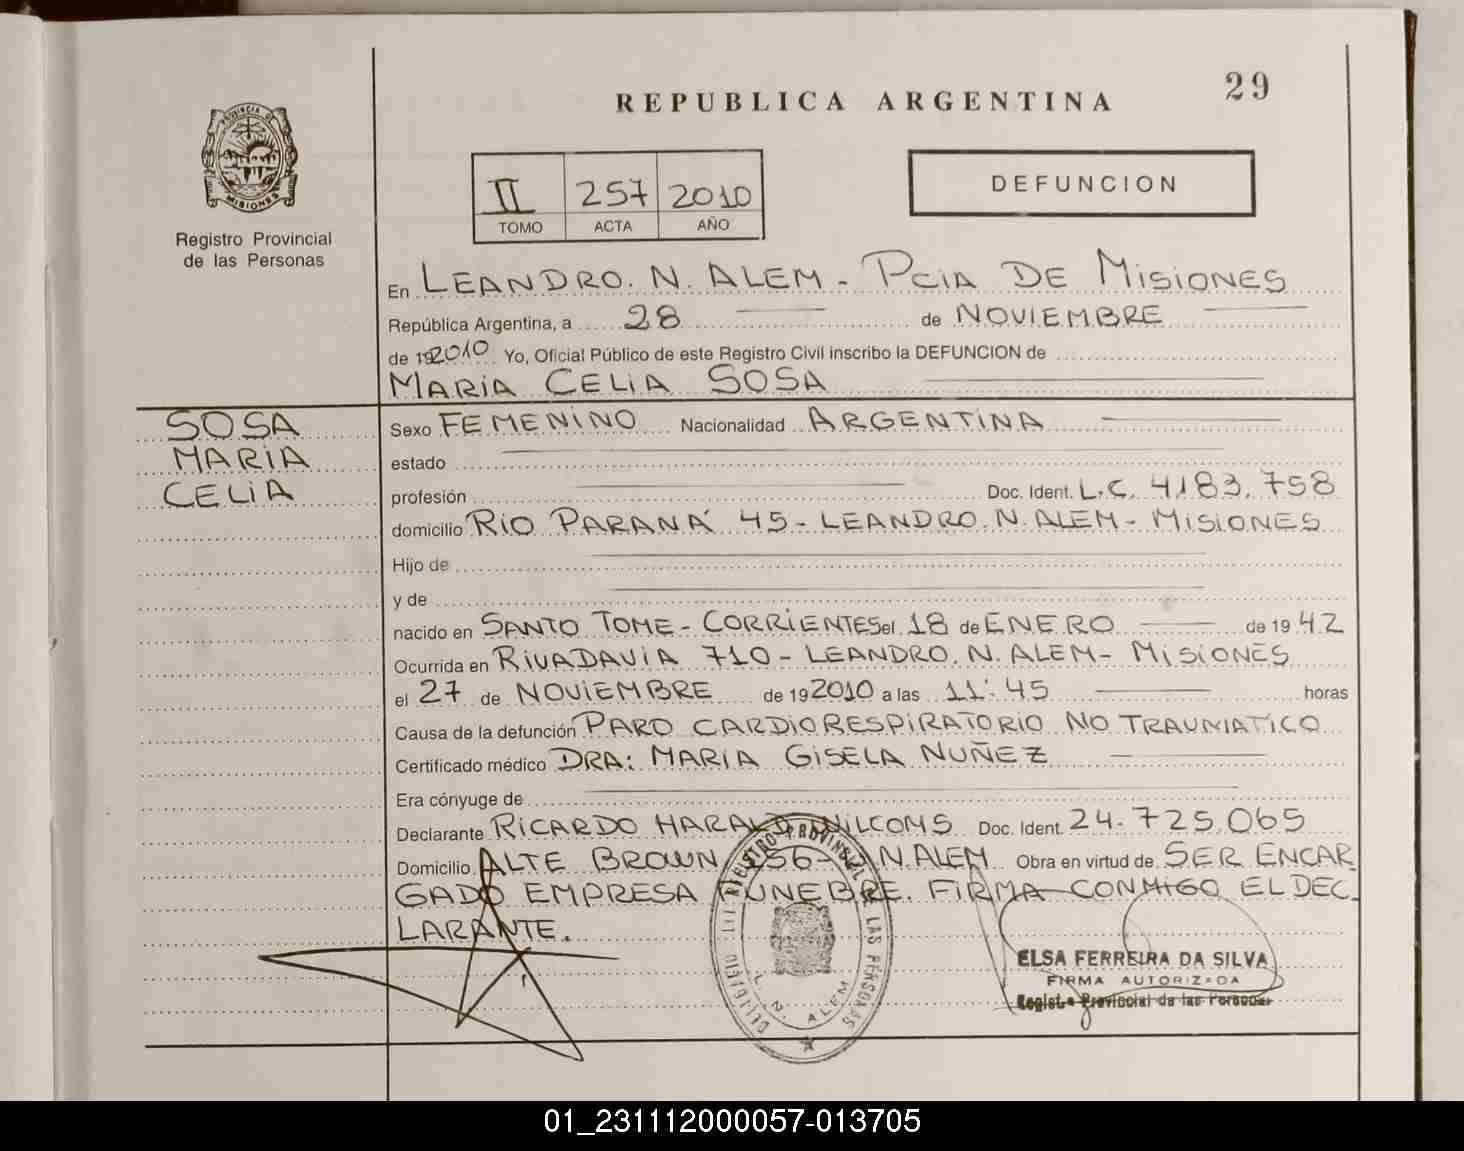 29
REPUBLICA ARGENTINA
PROVINCIA DE
MISIONES
Registro Provincial
de las Personas
II 257 2010
TOMO ACTA AÑO
DEFUNCION
En LEANDRO. N. ALEM - PCIA DE MISIONES
República Argentina, a 28 de NOVIEMBRE
de 192010 Yo, Oficial Público de este Registro Civil inscribo la DEFUNCION de
MARIA CELIA SOSA
SOSA
MARIA
CELIA
Sexo FEMENINO Nacionalidad ARGENTINA
estado
profesión Doc. Ident. L.C. 4.183.758
domicilio RIO PARANÁ 45 - LEANDRO. N. ALEM - MISIONES
Hijo de
y de
nacido en SANTO TOME - CORRIENTES el 18 de ENERO de 1942
Ocurrida en RIVADAVIA 710 - LEANDRO. N. ALEM - MISIONES
el 27 de NOVIEMBRE de 192010 a las 11:45 horas
Causa de la defunción PARO CARDIORESPIRATORIO NO TRAUMATICO
Certificado médico DRA: MARIA GISELA NUÑEZ
Era cónyuge de
Declarante RICARDO HARALD WILCOMS Doc. Ident. 24.725.065
Domicilio ALTE BROWN 256 - L.N.ALEM Obra en virtud de SER ENCAR
GADO EMPRESA FUNEBRE. FIRMA CONMIGO EL DEC_
LARANTE.
REGISTRO PROVINCIAL DE LAS PERSONAS
L. N. ALEM
ELSA FERREIRA DA SILVA
FIRMA AUTORIZADA
Registro Provincial de las Personas
01_231112000057-013705